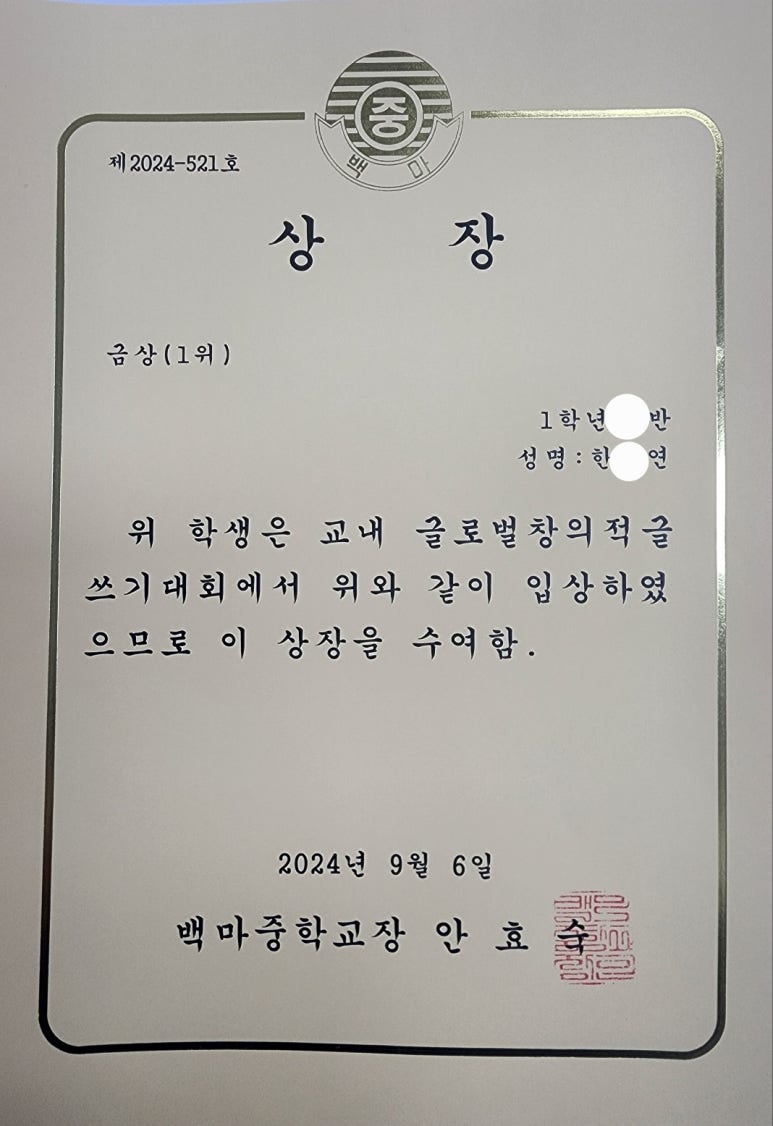 중
백 마
제2024-521호
상 장
금상(1위)
1학년 반
성명:한 연
위 학생은 교내 글로벌창의적글
쓰기대회에서 위와 같이 입상하였
으므로 이 상장을 수여함.
2024년 9월 6일
백마중학교장 안 효 숙